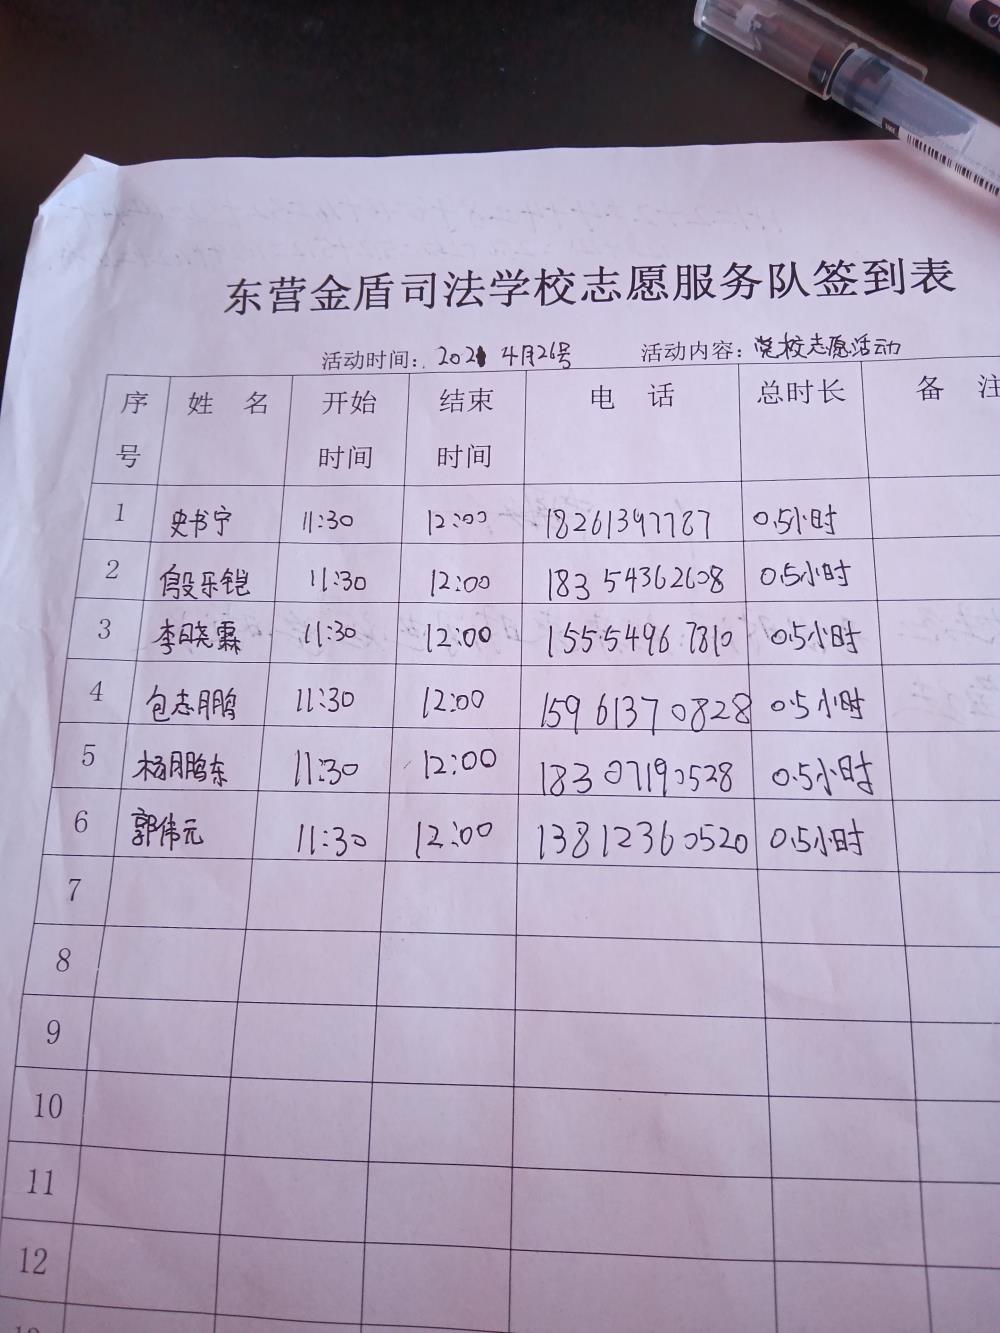 东营金盾司法学校志愿服务队签到表
活动时间：2021 4月26号 活动内容：党校志愿活动
序号 姓 名 开始时间 结束时间 电 话 总时长 备 注
1 史书宁 11:30 12:00 18261397787 0.5小时
2 殷乐铠 11:30 12:00 18354362608 0.5小时
3 李晓霖 11:30 12:00 15554967810 0.5小时
4 包志鹏 11:30 12:00 15961370828 0.5小时
5 杨鹏东 11:30 12:00 18307190528 0.5小时
6 郭伟元 11:30 12:00 13812360520 0.5小时
7
8
9
10
11
12